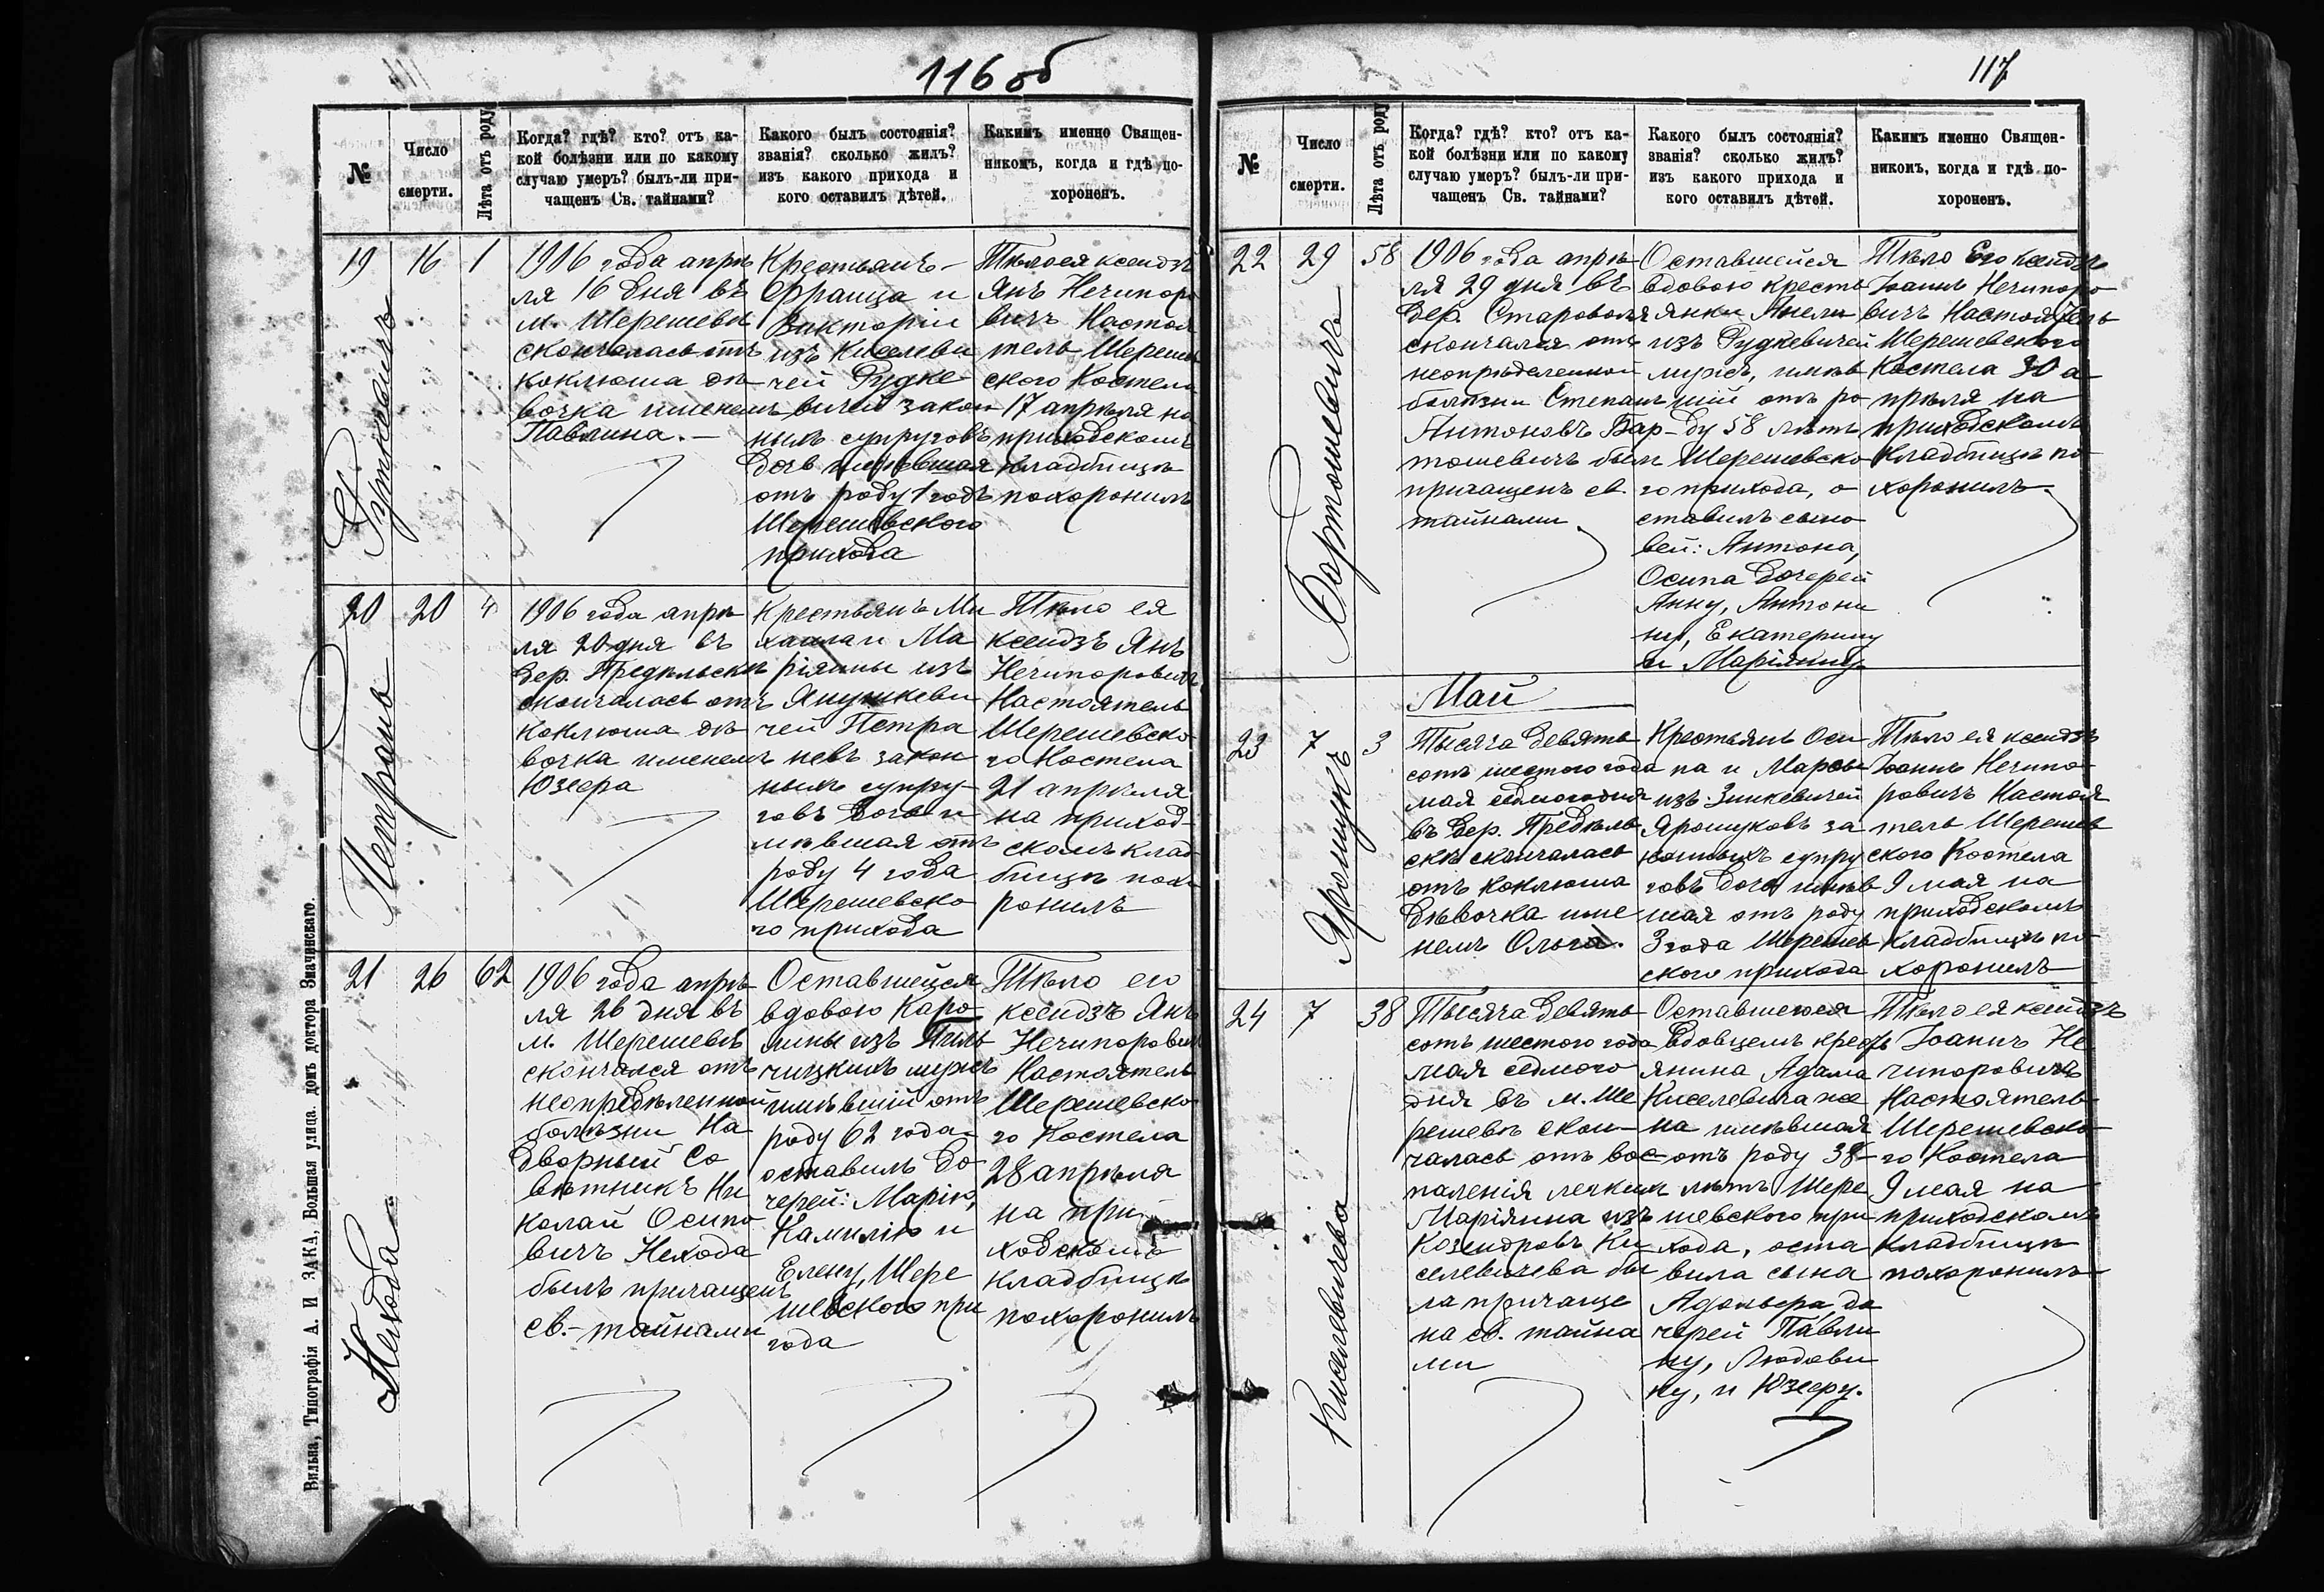 116 об
№
Число
смерти.
Лѣта отъ роду
Когда? гдѣ? кто? отъ ка-
кой болѣзни или по какому
случаю умеръ? былъ-ли при-
чащенъ Св. тайнами?
Какого былъ состоянія?
званія? сколько жилъ?
изъ какого прихода и
кого оставилъ дѣтей.
Какимъ именно Священ-
никомъ, когда и гдѣ по-
хороненъ.
19
16
1
1906 года апрѣ
ля 16 дня въ
м. Шерешевѣ
скончалась отъ
коклюша дѣ-
вочка именемъ
Павлина.-
Крестьянъ-
Франца и
Викторіи
изъ Киселеви
чей Рудке
вичей закон
ныхъ супруговъ
дочь имѣвшая
отъ роду 1 годъ
Шерешевского
прихода
Тѣло ея ксендзъ
Янъ Нечипоро
вичъ Настоя
тель Шерешев
ского Костела
17 апрѣля на
приходскомъ
кладбищѣ
похоронилъ
20
20
4
Петронь
1906 года апрѣ
ля 20 дня въ
дер. Предѣльскѣ
скончалась отъ
коклюша дѣ
вочка именемъ
Юзефа
Крестьянъ Ми
хаила и Ма
ріянны изъ
Янушкеви
чей Петра
невъ закон
ныхъ супру-
говъ дочь и
мѣвшая отъ
роду 4 года
Шерешевско
го прихода
Тѣло ея
ксендзъ Янъ
Нечипоровичъ
Настоятель
Шерешевско-
го Костела
21 апрѣля
на приход-
скомъ клад-
бищѣ похо
ронилъ
21
26
62
Нехода
1906 года апрѣ-
ля 26 дня въ
м. Шерешевѣ
скончался отъ
неопредѣленной
болѣзни На
дворный Со
вѣтникъ Ни
колай Осипо
вичъ Нехода
былъ причащенъ
св.-тайнами
Оставшейся
вдовою Каро
лины изъ
чицкихъ мужъ
имѣвшій отъ
роду 62 года
оставилъ до
черей: Марію,
Камилію и
Елену, Шере
шевского при
года
Тѣло его
ксендзъ Янъ
Нечипорович
Настоятель
Шерешевско
го Костела
28 апрѣля
на при
ходскомъ
кладбищѣ
похоронилъ
Вильна, Типографія А. И ЗАКА, Большая улица. домъ доктора Змачинскаго.
117
№
Число
смерти.
Лѣта отъ роду
Когда? гдѣ? кто? отъ ка-
кой болѣзни или по какому
случаю умеръ? былъ-ли при-
чащенъ Св. тайнами?
Какого былъ состоянія?
званія? сколько жилъ?
изъ какого прихода и
кого оставилъ дѣтей.
Какимъ именно Священ-
никомъ, когда и гдѣ по-
хороненъ.
22
29
58
Бортошевичъ
1906 года апрѣ
ля 29 дня въ
дер. Староволя
скончался отъ
неопредѣленной
болѣзни Степанъ
Антоновъ Бар-
тошевичъ былъ
причащенъ св.
тайнами
Оставшейся
вдовою кресть
янки Анели
изъ Рудкевичей
мужъ, имѣв
шій отъ ро
ду 58 лѣтъ
Шерешевско
го прихода, о
ставилъ сыно
вей: Антона,
Осипа дочерей
Анну, Антони
ну, Екатерину
и Маріянну
Тѣло Его ксендзъ
Іоаннъ Нечипоро
вичъ Настоятель
Шерешевского
Костела 30 а
прѣля на
приходскомъ
кладбищѣ по
хоронилъ.
Май
23
7
3
Ярошукъ
Тысяча девять
сотъ шестого года
мая седьмого дня
въ дер. Предѣль
скѣ скончалась
отъ коклюша
дѣвочка име
немъ Ольга.
Крестьянъ Оси
па и Марьи
изъ Зинкевичей
Ярошуковъ за
конныхъ супру
говъ дочь имѣв
шая отъ роду
3 года Шерешев
ского прихода
Тѣло ея ксендзъ
Іоаннъ Нечипо
ровичъ Настоя
тель Шерешев
ского Костела
9 мая на
приходскомъ
кладбищѣ по
хоронилъ
24
7
38
Киселевичева
Тысяча девять
сотъ шестого года
мая седьмого
дня въ м. Ше
решевѣ скон-
чалась отъ вос
паленія легкихъ
Маріянна изъ
Ки
селевичева бы
ла причаще
на св. тайна
ми
Оставшегося
вдовцемъ кресть
янина Адама
Киселевича же
на имѣвшая
отъ роду 38
лѣтъ Шере
шевского при
хода, оста
вила сына
до
черей Павли
ну, Людови
ку, и Юзефу.
Тѣло ея ксендзъ
Іоаннъ Не
чипоровичъ
Настоятель
Шерешевско-
го Костела
9 мая на
приходскомъ
кладбищѣ
похоронилъ